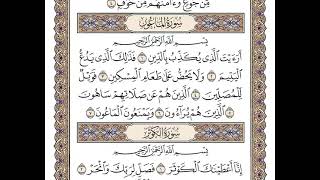 مِّن جُوعٍ وَءَامَنَهُم مِّنْ خَوْفٍ ٤
سُورَةُ المَاعُونِ
بِسْمِ اللَّهِ الرَّحْمَٰنِ الرَّحِيمِ
أَرَءَيْتَ الَّذِي يُكَذِّبُ بِالدِّينِ ١ فَذَٰلِكَ الَّذِي يَدُعُّ
الْيَتِيمَ ٢ وَلَا يَحُضُّ عَلَىٰ طَعَامِ الْمِسْكِينِ ٣ فَوَيْلٌ
لِّلْمُصَلِّينَ ٤ الَّذِينَ هُمْ عَن صَلَاتِهِمْ سَاهُونَ
٥ الَّذِينَ هُمْ يُرَاءُونَ ٦ وَيَمْنَعُونَ الْمَاعُونَ ٧
سُورَةُ الكَوْثَرِ
بِسْمِ اللَّهِ الرَّحْمَٰنِ الرَّحِيمِ
إِنَّا أَعْطَيْنَاكَ الْكَوْثَرَ ١ فَصَلِّ لِرَبِّكَ وَانْحَرْ ٢